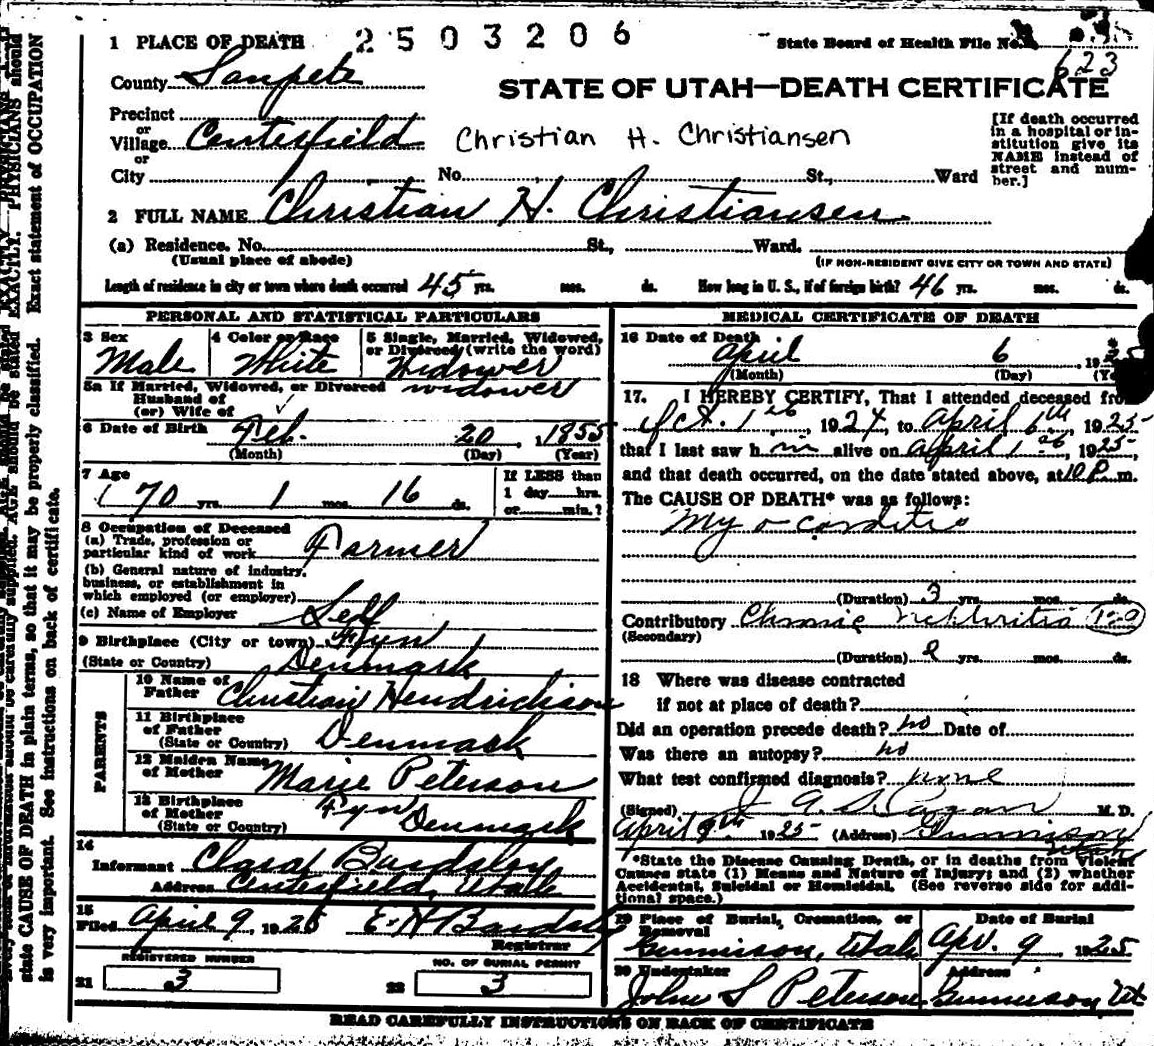 1 PLACE OF DEATH 2503206 State Board of Health File No. 623
County Sanpete
STATE OF UTAH—DEATH CERTIFICATE
Precinct
or
Village Centerfield Christian H. Christiansen
or
City No. St., Ward
[If death occurred
in a hospital or in-
stitution give its
NAME instead of
street and num-
ber.]
2 FULL NAME Christian H. Christiansen
(a) Residence. No. St., Ward.
(Usual place of abode) (IF NON-RESIDENT GIVE CITY OR TOWN AND STATE)
Length of residence in city or town where death occurred 45 yrs. mos. ds. How long in U. S., if of foreign birth? 46 yrs. mos. ds.
PERSONAL AND STATISTICAL PARTICULARS
3 Sex 4 Color or Race 5 Single, Married, Widowed,
or Divorced (write the word)
Male White Widower
5a If Married, Widowed, or Divorced widower
Husband of
(or) Wife of
6 Date of Birth Feb. 20, 1855
(Month) (Day) (Year)
7 Age If LESS than
70 yrs. 1 mos. 16 ds. 1 day hrs.
or min.?
8 Occupation of Deceased
(a) Trade, profession or
particular kind of work Farmer
(b) General nature of industry,
business, or establishment in
which employed (or employer)
(c) Name of Employer Self
9 Birthplace (City or town) Fyn
(State or Country) Denmark
PARENTS
10 Name of
Father Christian Hendrickson
11 Birthplace
of Father
(State or Country) Denmark
12 Maiden Name
of Mother Marie Peterson
13 Birthplace
of Mother Fyn
(State or Country) Denmark
14
Informant Clara Bardsley
Address Centerfield, Utah
15
Filed April 9, 1925 E. H. Bardsley
Registrar
REGISTERED NUMBER NO. OF BURIAL PERMIT
21 3 22 3
MEDICAL CERTIFICATE OF DEATH
16 Date of Death
April 6, 192
(Month) (Day)
17. I HEREBY CERTIFY, That I attended deceased from
Oct. 1st, 1924, to April 6th, 1925
that I last saw him alive on April 1st, 1925,
and that death occurred, on the date stated above, at 10 P. m.
The CAUSE OF DEATH* was as follows:
Myocarditis
(Duration) 3 yrs. mos. ds.
Contributory Chronic nephritis 129
(Secondary)
(Duration) 2 yrs. mos. ds.
18 Where was disease contracted
if not at place of death?
Did an operation precede death? no Date of
Was there an autopsy? no
What test confirmed diagnosis? none
(Signed) M. D.
April 9th 1925 (Address) Gunnison
Utah
*State the Disease Causing Death, or in deaths from Violent
Causes state (1) Means and Nature of Injury; and (2) whether
Accidental, Suicidal or Homicidal. (See reverse side for addi-
tional space.)
19 Place of Burial, Cremation, or Date of Burial
Removal
Gunnison, Utah Apr. 9 1925
20 Undertaker Address
John S Peterson Gunnison Ut
READ CAREFULLY INSTRUCTIONS ON BACK OF CERTIFICATE
EXACTLY. PHYSICIANS should
Exact statement of OCCUPATION
state CAUSE OF DEATH in plain terms, so that it may be properly classified.
is very important. See instructions on back of certificate.